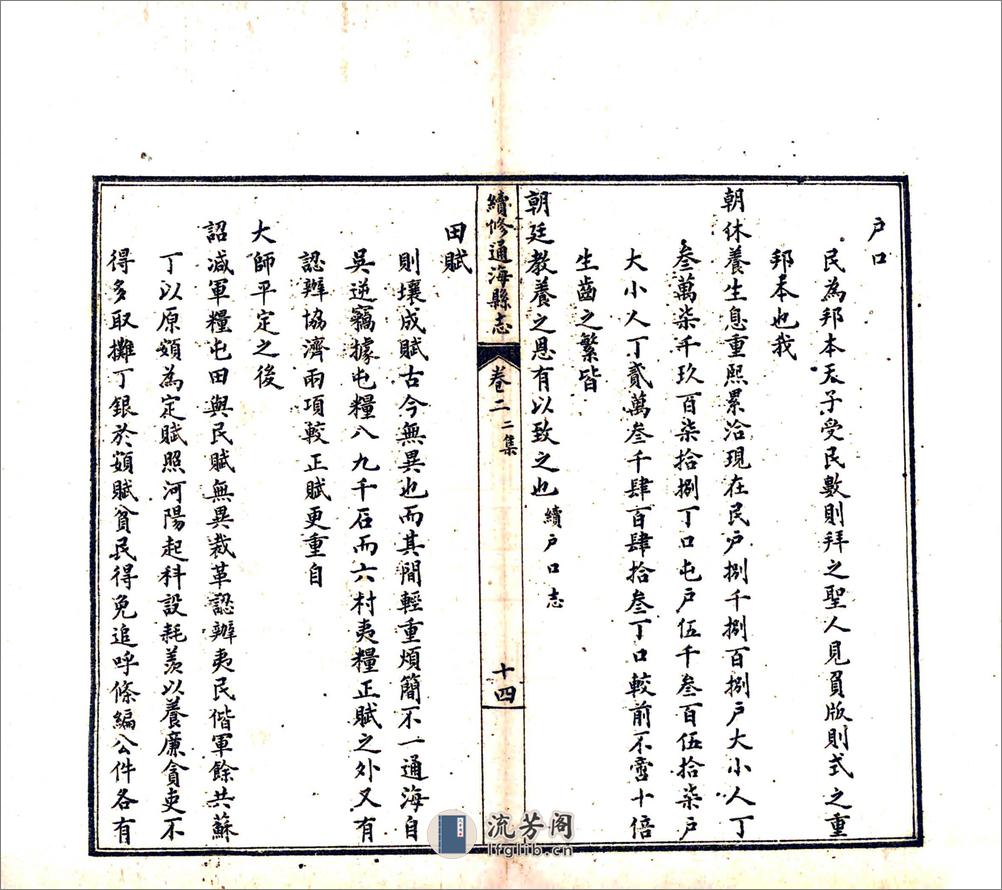 户口
民為邦本天子受民數則拜之聖人見負版則式之重
邦本也我
朝休養生息重熙累洽現在民户捌千捌百捌户大小人丁
叁萬柒千玖百柒拾捌丁口屯户伍千叁百伍拾柒户
大小人丁貳萬叁千肆百肆拾叁丁口較前不啻十倍
生齒之繁皆
朝廷教養之恩有以致之也 續户口志
續修通海縣志 卷二 二集 十四
田賦
則壤成賦古今無異也而其間輕重煩簡不一通海自
吳逆竊據屯糧八九千石而六村夷糧正賦之外又有
認辦協濟兩項較正賦更重自
大師平定之後
詔减軍糧屯田與民賦無異裁革認辦夷民偕軍餘共蘇
丁以原額為定賦照河陽起科設耗羨以養廉貪吏不
得多取攤丁銀於額賦貧民得免追呼條編公件各有
流芳阁
lfglib.cn